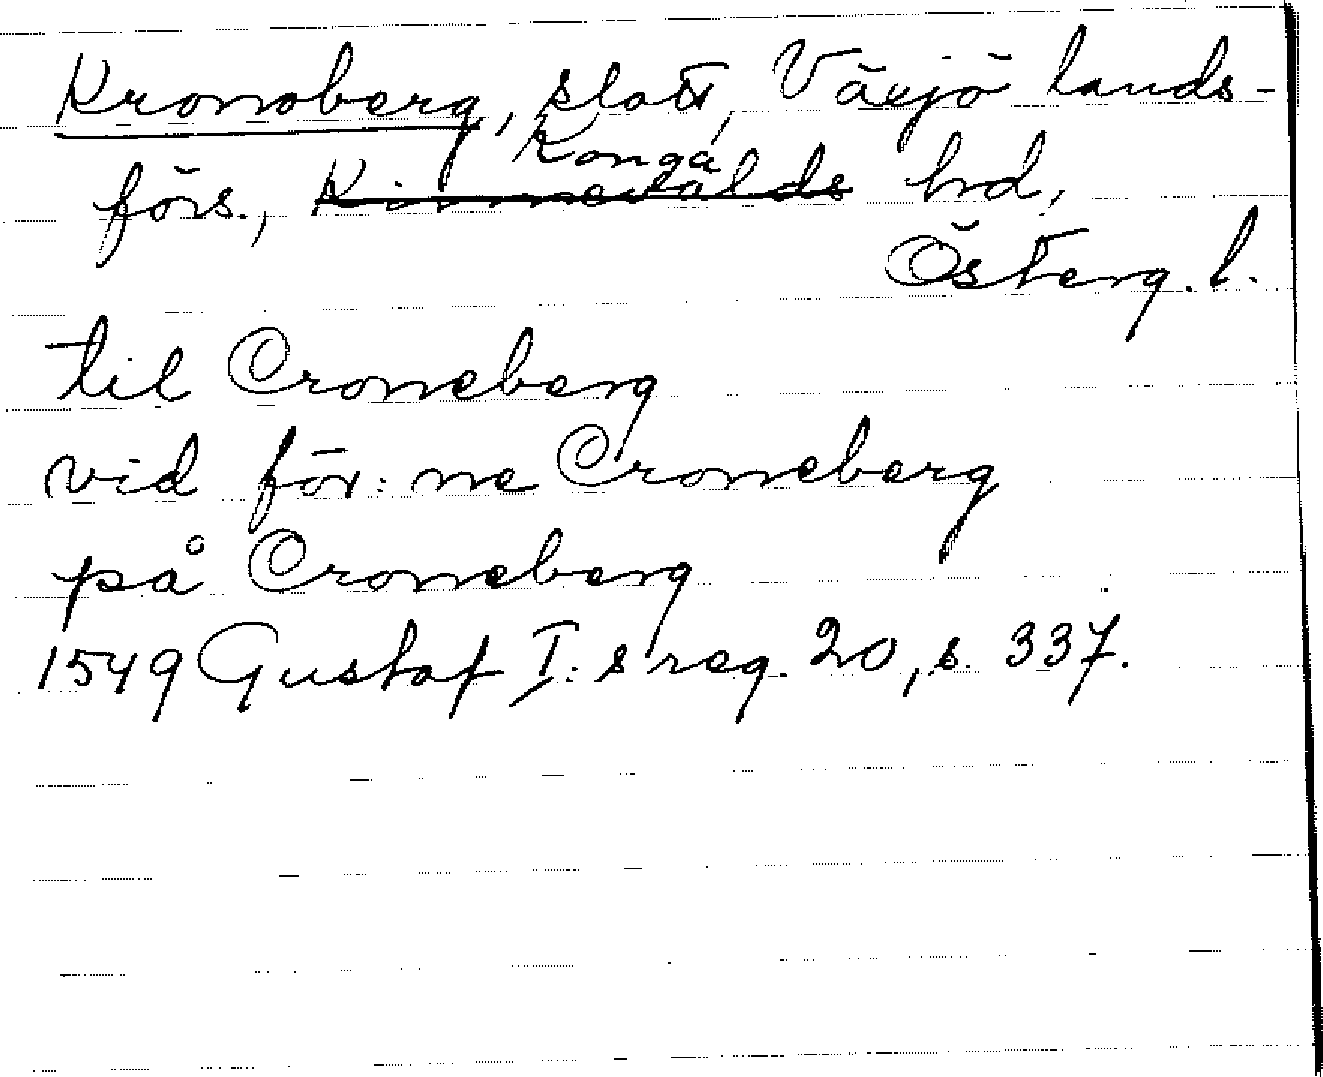 Kronoberg, slott, Växjö lands-
Konga
förs., Kinnevalds hd,
Österg. l.
til Croneberg
vid för: ne Croneberg
på Croneberg
1549 Gustaf I:s reg. 20, s. 337.